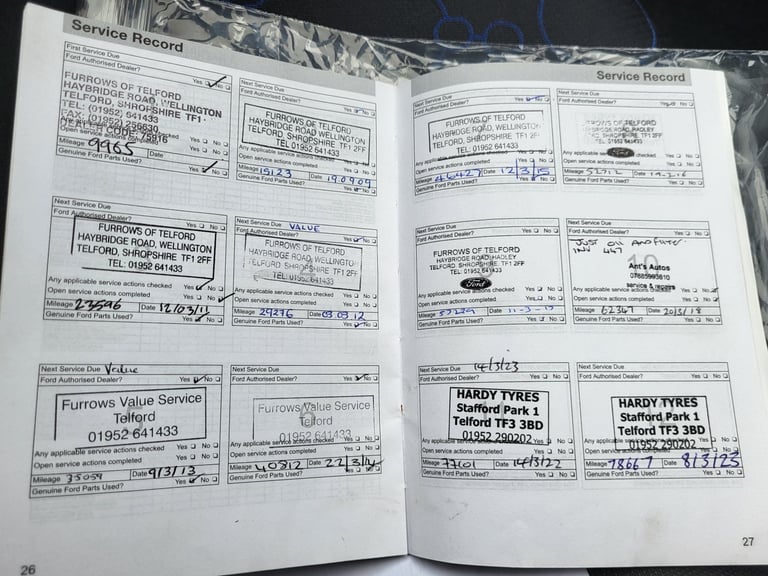 Service Record
First Service Due
Ford Authorised Dealer? Yes No
FURROWS OF TELFORD
HAYBRIDGE ROAD, WELLINGTON
TELFORD, SHROPSHIRE TF1
TEL: (01952) 641433
Open service actions completed Yes No
Mileage 9965 Date
Genuine Ford Parts Used? Yes No
Next Service Due
Ford Authorised Dealer? Yes No
FURROWS OF TELFORD
HAYBRIDGE ROAD, WELLINGTON
TELFORD, SHROPSHIRE TF1 2FF
TEL: 01952 641433
Any applicable service actions checked Yes No
Open service actions completed Yes No
Mileage 15123 Date 19.09.09
Genuine Ford Parts Used? Yes No
Next Service Due
Ford Authorised Dealer? Yes No
FURROWS OF TELFORD
HAYBRIDGE ROAD, WELLINGTON
TELFORD, SHROPSHIRE TF1 2FF
TEL: 01952 641433
Any applicable service actions checked Yes No
Open service actions completed Yes No
Mileage 23596 Date 12/03/11
Genuine Ford Parts Used? Yes No
Next Service Due VALUE
Ford Authorised Dealer? Yes No
FURROWS OF TELFORD
HAYBRIDGE ROAD, WELLINGTON
TELFORD, SHROPSHIRE TF1 2FF
TEL: 01952 641433
Any applicable service actions checked Yes No
Open service actions completed Yes No
Mileage 29276 Date 03 03 12
Genuine Ford Parts Used? Yes No
Next Service Due Value
Ford Authorised Dealer? Yes No
Furrows Value Service
Telford
01952 641433
Any applicable service actions checked Yes No
Open service actions completed Yes No
Mileage 35059 Date 9/3/13
Genuine Ford Parts Used? Yes No
Next Service Due
Ford Authorised Dealer? Yes No
Furrows Value Service
Telford
01952 641433
Any applicable service actions checked Yes No
Open service actions completed Yes No
Mileage 40812 Date 22/3/14
Genuine Ford Parts Used? Yes No
26
Service Record
Next Service Due
Ford Authorised Dealer? Yes No
FURROWS OF TELFORD
HAYBRIDGE ROAD, WELLINGTON
TELFORD, SHROPSHIRE TF1 2FF
TEL: 01952 641433
Any applicable service actions checked Yes No
Open service actions completed Yes No
Mileage 46427 Date 12/3/15
Genuine Ford Parts Used? Yes No
Next Service Due
Ford Authorised Dealer? Yes No
ROAD, HADLEY
TEL: 01952 641433
Ford
checked Yes No
Open service actions completed Yes No
Mileage 52712 Date
Genuine Ford Parts Used? Yes No
Next Service Due
Ford Authorised Dealer? Yes No
FURROWS OF TELFORD
HAYBRIDGE ROAD, HADLEY
TELFORD, SHROPSHIRE TF1 2FF
TEL: 01952 641433
Ford
Any applicable service actions checked Yes No
Open service actions completed Yes No
Mileage Date 11-3-17
Genuine Ford Parts Used? Yes No
Next Service Due
Ford Authorised Dealer? Yes No
Just oil and filter
INV 447
10
Ant's Autos
07885993610
service & repairs
Any applicable service actions checked Yes No
Open service actions completed Yes No
Mileage 62347 Date 20/5/18
Genuine Ford Parts Used? Yes No
Next Service Due 14/3/23
Ford Authorised Dealer? Yes No
HARDY TYRES
Stafford Park 1
Telford TF3 3BD
01952 290202
Any applicable service actions checked Yes No
Open service actions completed Yes No
Mileage 77101 Date 14/3/22
Genuine Ford Parts Used? Yes No
Next Service Due
Ford Authorised Dealer? Yes No
HARDY TYRES
Stafford Park 1
Telford TF3 3BD
01952 290202
Any applicable service actions checked Yes No
Open service actions completed Yes No
Mileage 78667 Date 8/3/23
Genuine Ford Parts Used? Yes No
27